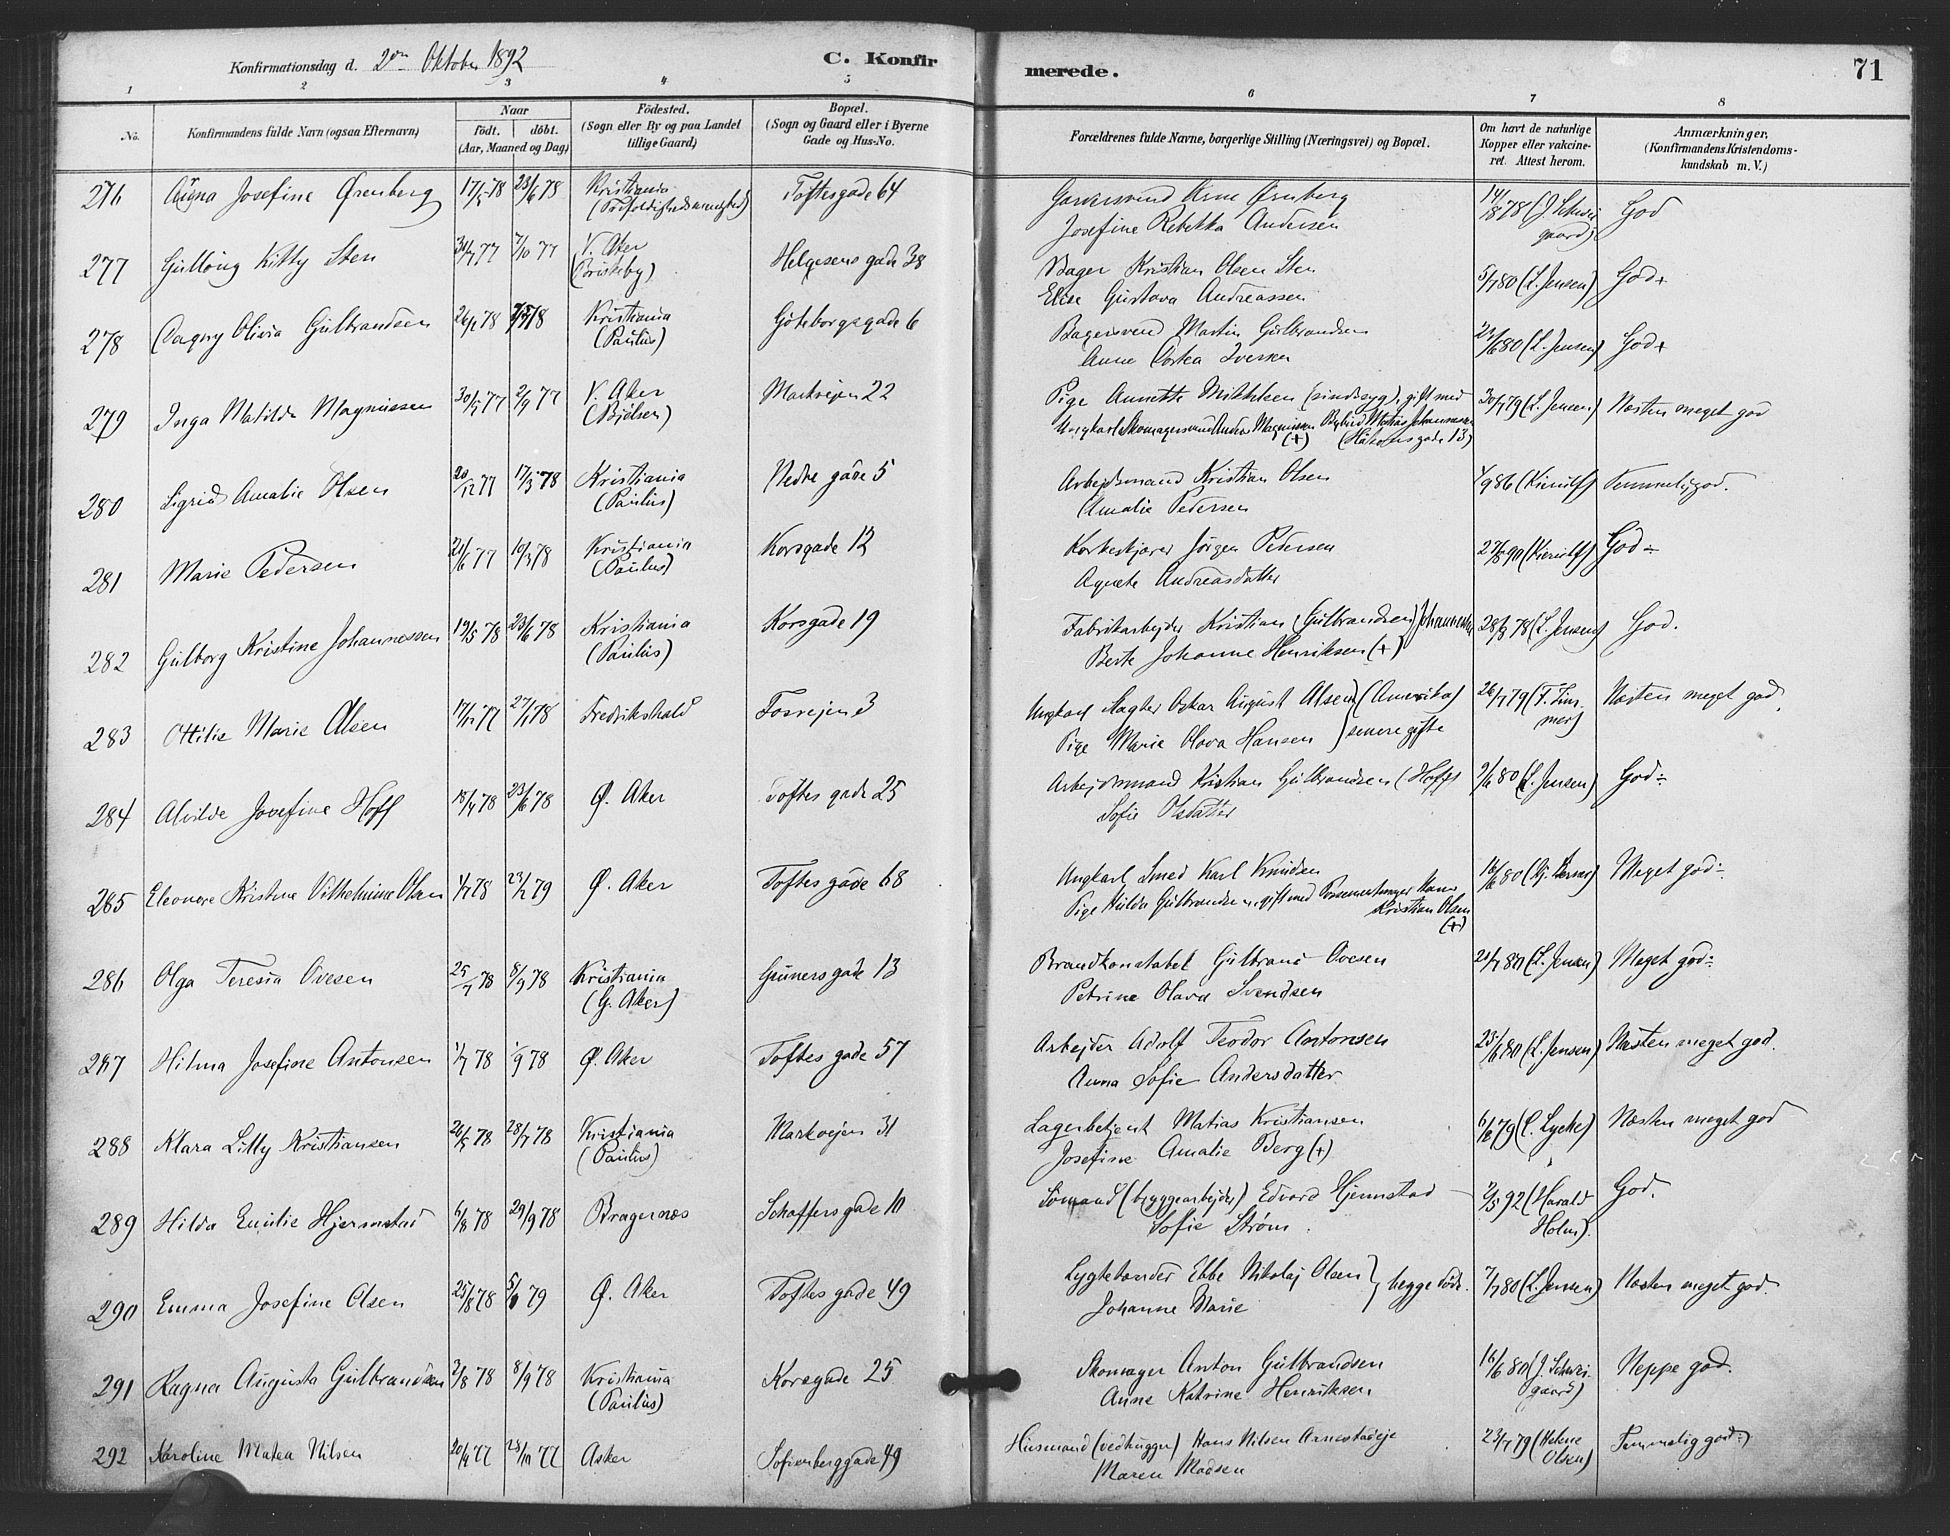 Konfirmationsdag d. 2den Oktober 1892
C. Konfir
merede.
71
1 2 3 4 5 6 7 8
No.
Konfirmandens fulde Navn (ogsaa Efternavn)
Naar
födt. döbt.
(Aar, Maaned og Dag)
Födested.
(Sogn eller By og paa Landet
tillige Gaard)
Bopæl.
(Sogn og Gaard eller i Byerne
Gade og Hus-No.
Forældrenes fulde Navne, borgerlige Stilling (Næringsvei) og Bopæl.
Om havt de naturlige
Kopper eller vakcine-
ret. Attest herom.
Anmærkninger.
(Konfirmandens Kristendoms-
kundskab m. V.)
276 Josefine Ørenberg 17/5 78 23/6 78 Kristiania Toftesgade 64 Garversvend Arne Ørenberg 14/8 78 (J. Schwei- God
(Trefoldighedsmenighed) Josefine Rebekka Andersen gaard)
277 Gullöug Kitty Sten 7/10 77 V. Aker Helgesens gade 38 Bager Kristian Olsen Sten 5/7 80 (L. Jensen) God+
(Briskeby) Elise Gustava Andreassen
278 Dagny Olivia Gulbrandsen 78 Kristiania Göteborgsgade 6 Bagersvend Martin Gulbrandsen 80 (L. Jensen) God+
(Paulus) Anne Iversen
279 Inga Matilde Magnussen 77 2/9 77 V. Aker Markvejen 22 Pige Annette Mikkelsen (sindssyg), gift med 79 (L. Jensen) Næsten meget god
(Bjölsen) Ungkarl Skomagersvend Magnussen Matias Johannessen
(+)
280 Sigrid Amalie Olsen 20/12 77 17/3 78 Kristiania Nedre gade 5 Arbejdsmand Kristian Olsen 4/9 86 (Kierulf) Temmelig god.
(Paulus) Amalie Pedersen
281 Marie Pedersen 77 10/3 78 Kristiania Korsgade 12 Korkeskjærer Jörgen Pedersen 90 (Kierulf) God÷
(Paulus) Agnete Andreasdatter
282 Gulborg Kristine Johannessen 19/5 78 23/6 78 Kristiania Korsgade 19 Fabrikarbejder Kristian (Gulbrandsen) Johannessen 78 (L. Jensen) God.
(Paulus) Berte Johanne Henriksen (+)
283 Ottilie Marie Olsen 77 27/1 78 Fredrikshald Fossvejen 3 Ungkarl Slagter Oskar August Olsen (Amerika) 26/7 79 (F. Næsten meget god.
Pige Marie Olava Hansen senere gifte
284 Alvilde Josefine Hoff 18/4 78 23/6 78 Ø. Aker Toftes gade 25 Arbejdsmand Kristian Gulbrandsen (Hoff) 80 (L. Jensen) God÷
Sofie Olsdatter
285 Eleonore Kristine Vilhelmine Olsen 78 23/2 79 Ø. Aker Toftes gade 68 Ungkarl Smed Karl Knudsen 16/6 80 Meget god÷
Pige Hulda Gulbrandsen, gift med Possementmager Hans
Kristian Olsen
(+)
286 Olga Teresia Ovesen 25/7 78 8/9 78 Kristiania Grüners gade 13 Brandkonstabel Gulbrand Ovesen 80 (L. Jensen) Meget god÷
(G. Aker) Petrine Olava Svendsen
287 Hilma Josefine Antonsen 1/7 78 1/9 78 Ø. Aker Toftes gade 57 Arbejder Adolf Teodor Antonsen 80 (L. Jensen) Næsten meget god.
Anna Sofie Andersdatter
288 Klara Lilly Kristiansen 26/5 78 28/7 78 Kristiania Markvejen 31 Lagerbetjent Matias Kristiansen 79 (C. Lycke) Næsten meget god
(Paulus) Josefine Amalie Berg (+)
289 Hilda Emilie Hjermstad 6/8 78 29/9 78 Bragernæs Schaffers gade 10 Sömand (bryggearbejder) Edvard Hjermstad 92 (Harald God.
Sofie Strøm. Holm).
290 Emma Josefine Olsen 25/8 78 79 Ø. Aker Toftes gade 49 Lygtetænder Ebbe Nikolaj Olsen begge döde. 7/7 80 (L. Jensen) Næsten meget god.
Johanne Marie
291 Ragna Augusta Gulbrandsen 78 8/9 78 Kristiania Korsgade 25 Skomager Anton Gulbrandsen 16/6 80 (J. Schwei- Neppe god.
(Paulus) Anne Katrine Henriksen gaard)
292 Karoline Matea Nilsen 77 77 Asker Sofienberggade 49 Husmand (vedhugger) Hans Nilsen Arnestadeje 23/7 79 (Helene Temmelig god÷
Maren Madsen Olsen)